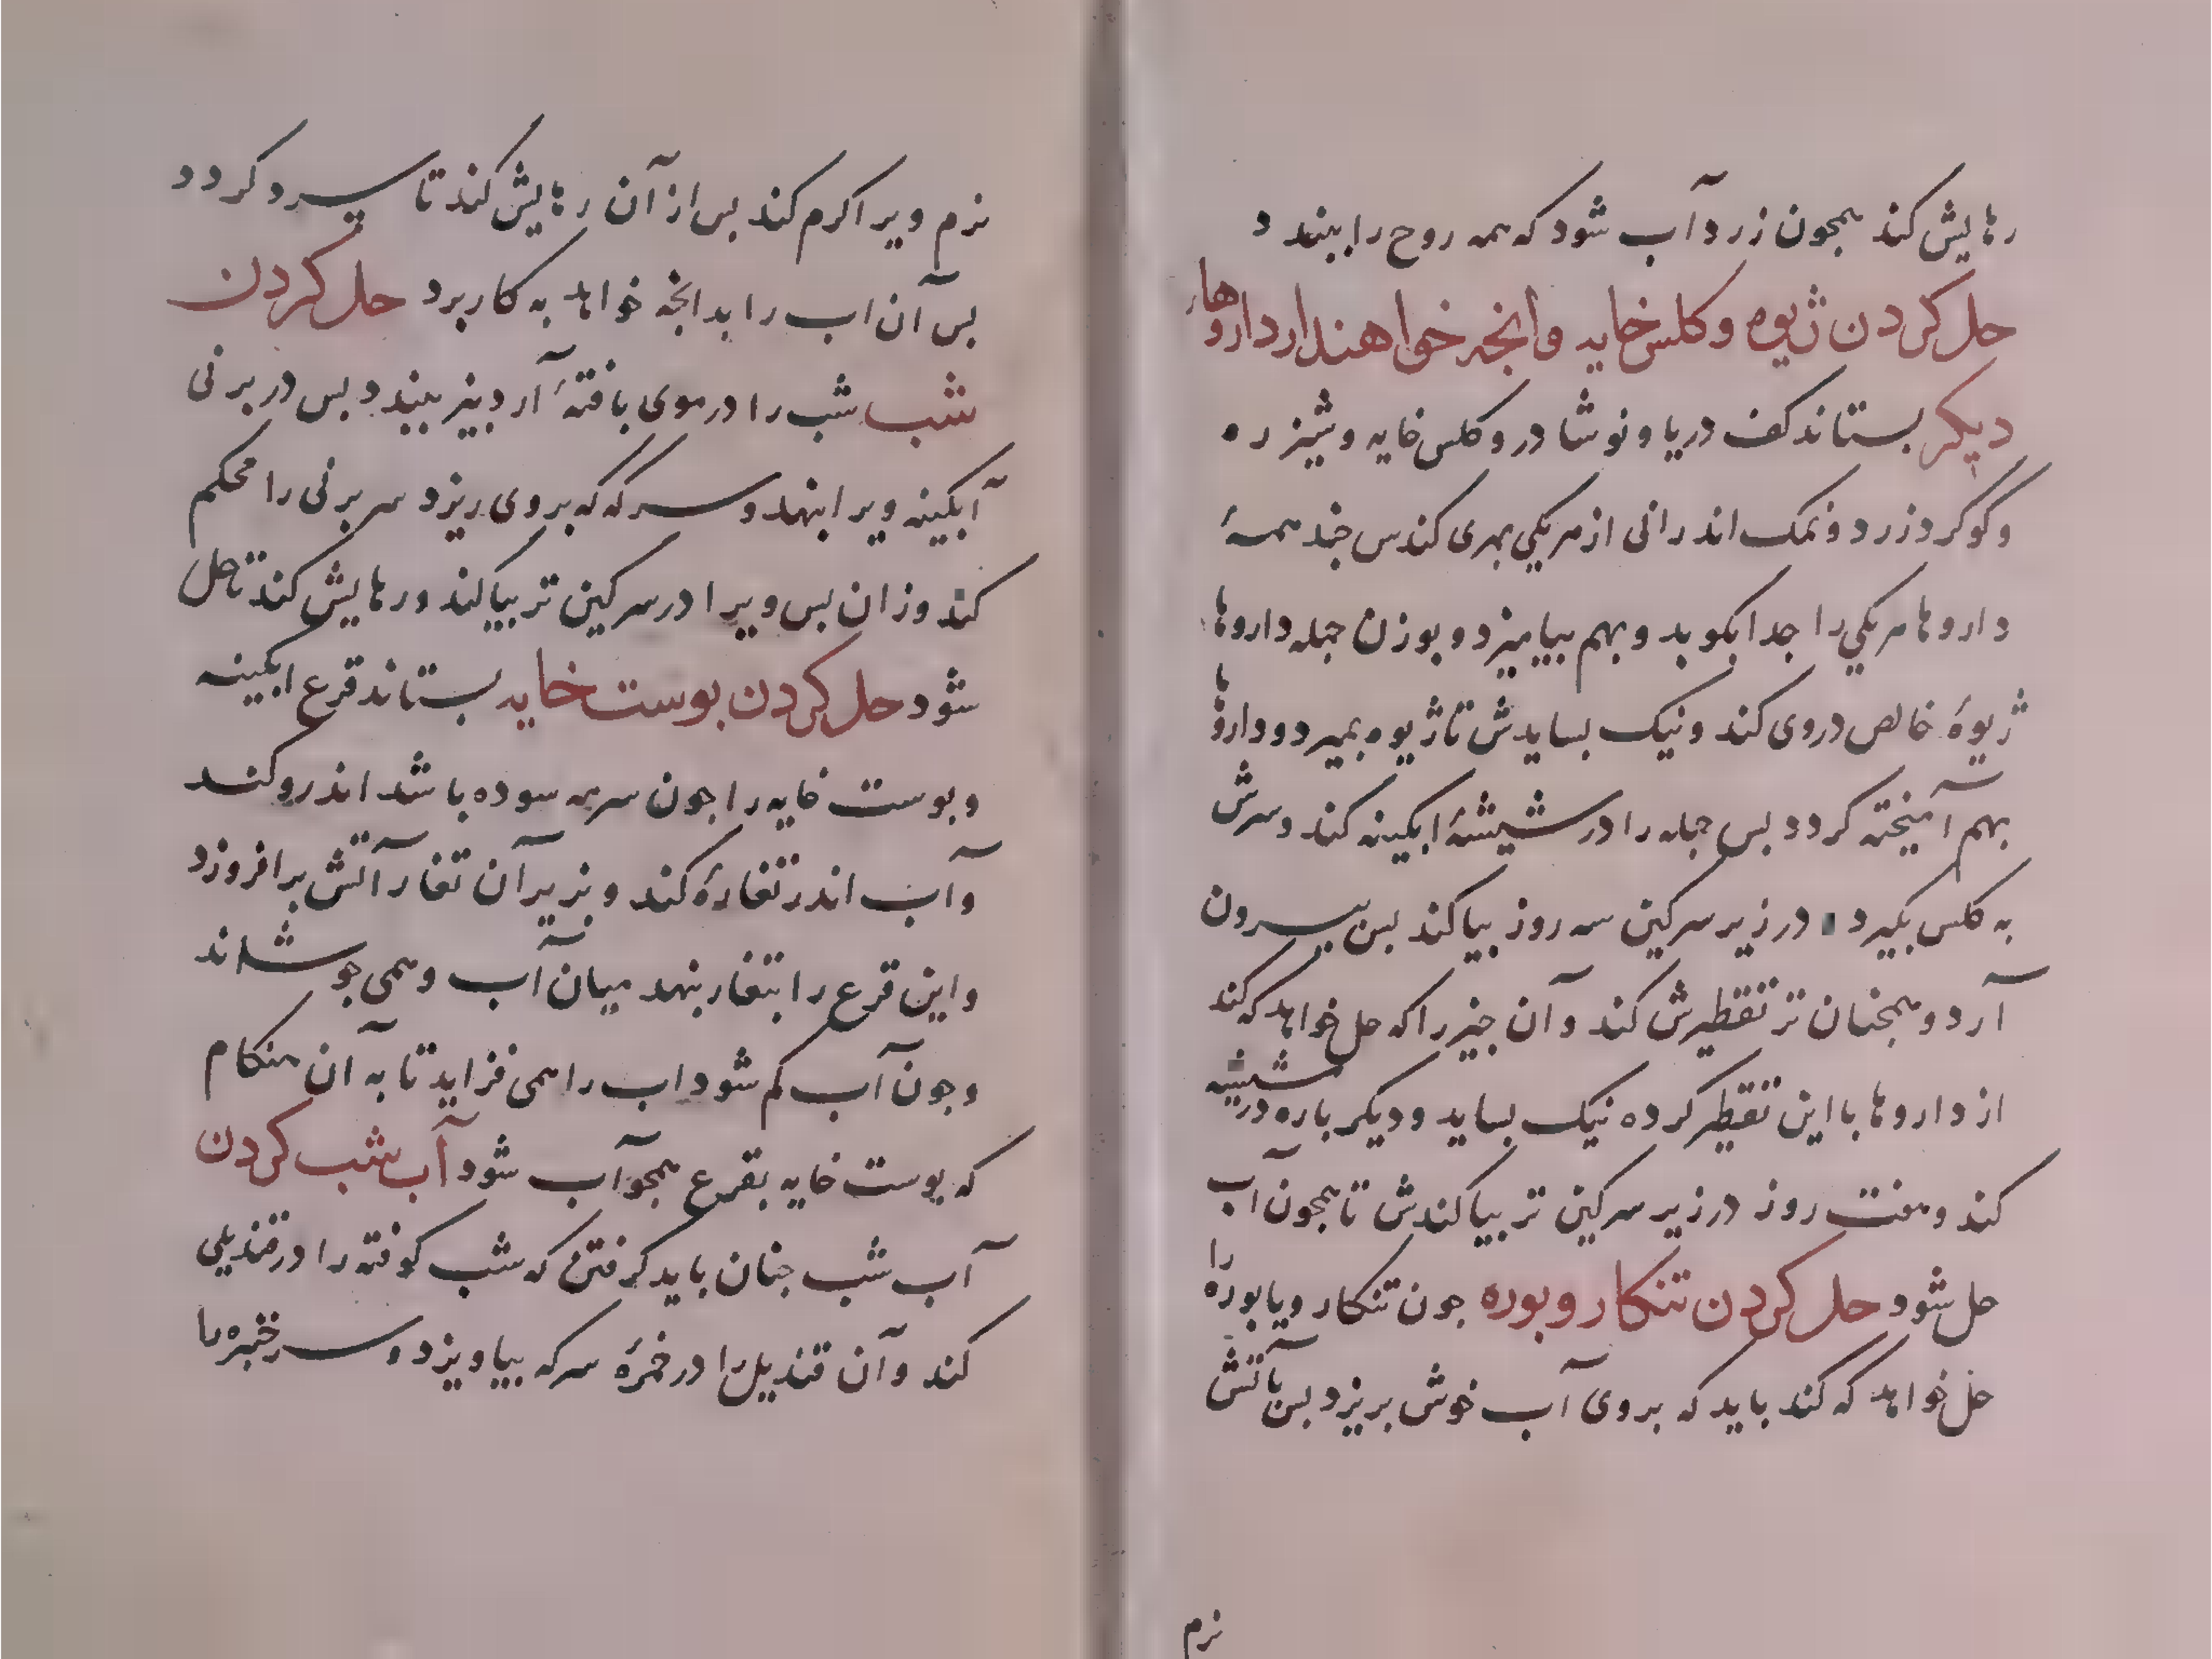 رهایش کند همجون زرد آب شود که همه روح را ببندد
حل کردن ژیوه و کلس خایه وانجه خواهند از داروهاء
دیکر بستاند کف دریا و نوشادر و کلس خایه و شیزره
و گوگرد زرد و نمک اندرانی از هر یکی بهری کند س جند همۀ
داروها هر یکی را جدا بکوبد و بهم بیامیزد و بوزن جمله داروها
ژیوۀ خالص دروی کند و نیک بسایدش تا ژیوه بمیرد و داروها
بهم آمیخته کردد بس جمله را در شیشۀ ابکینه کند و سرش
به کلس بکیرد در زیر سرکین سه روز بیاکند بس بیرون
آرد و همجنان تر تقطیرش کند و آن جیز را که حل خواهد که کند
از داروها با این تقطیر کرده نیک بساید و دیکر باره در شیشه
کند و هفت روز در زیر سرکین تر بیاکندش تا همجون آب
حل شود حل کردن تنکار و بوره جون تنکار و یا بوره را
حل خواهد که کند باید که بروی آب خوش بریزد بس بآتش
نرم
نرم ویرا کرم کند بس از آن رهایش کند تا سرد کردد
بس آن اب را بدانجه خواهد به کار برد حل کردن
شب شب را در موی بافتۀ آرد بیز ببندد بس در برنی
آبکینه ویرا بنهد و سرکه که بروی ریزد سر برنی را محکم
کند وزان بس ویرا در سرکین تر بیاکند و رهایش کند تا حل
شود حل کردن بوست خایه بستاند قرع ابکینه
و بوست خایه را جون سرمه سوده باشد اندرو کند
و آب اندر تغارۀ کند و بزیر آن تغار آتش برافروزد
و این قرع را بتغار بنهد میان آب و همی جوشاند
و جون آب کم شود اب را همی فزاید تا به آن هنکام
که بوست خایه بقرع همجو آب شود آب شب کردن
آب شب جنان باید کرفتن که شب کوفته را در قندیلی
کند و آن قندیل را در خمرۀ سرکه بیاویزد و سر خنبره را